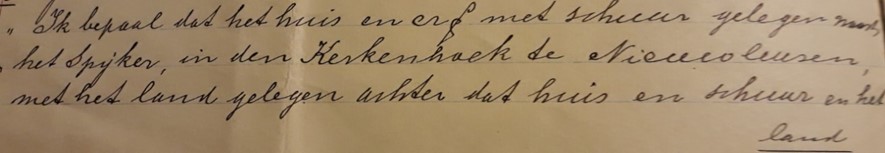 „ Ik bepaal dat het huis en erf met schuur gelegen naast
het Spijker, in den Kerkenhoek te Nieuwleusen,
met het land gelegen achter dat huis en schuur en het
land